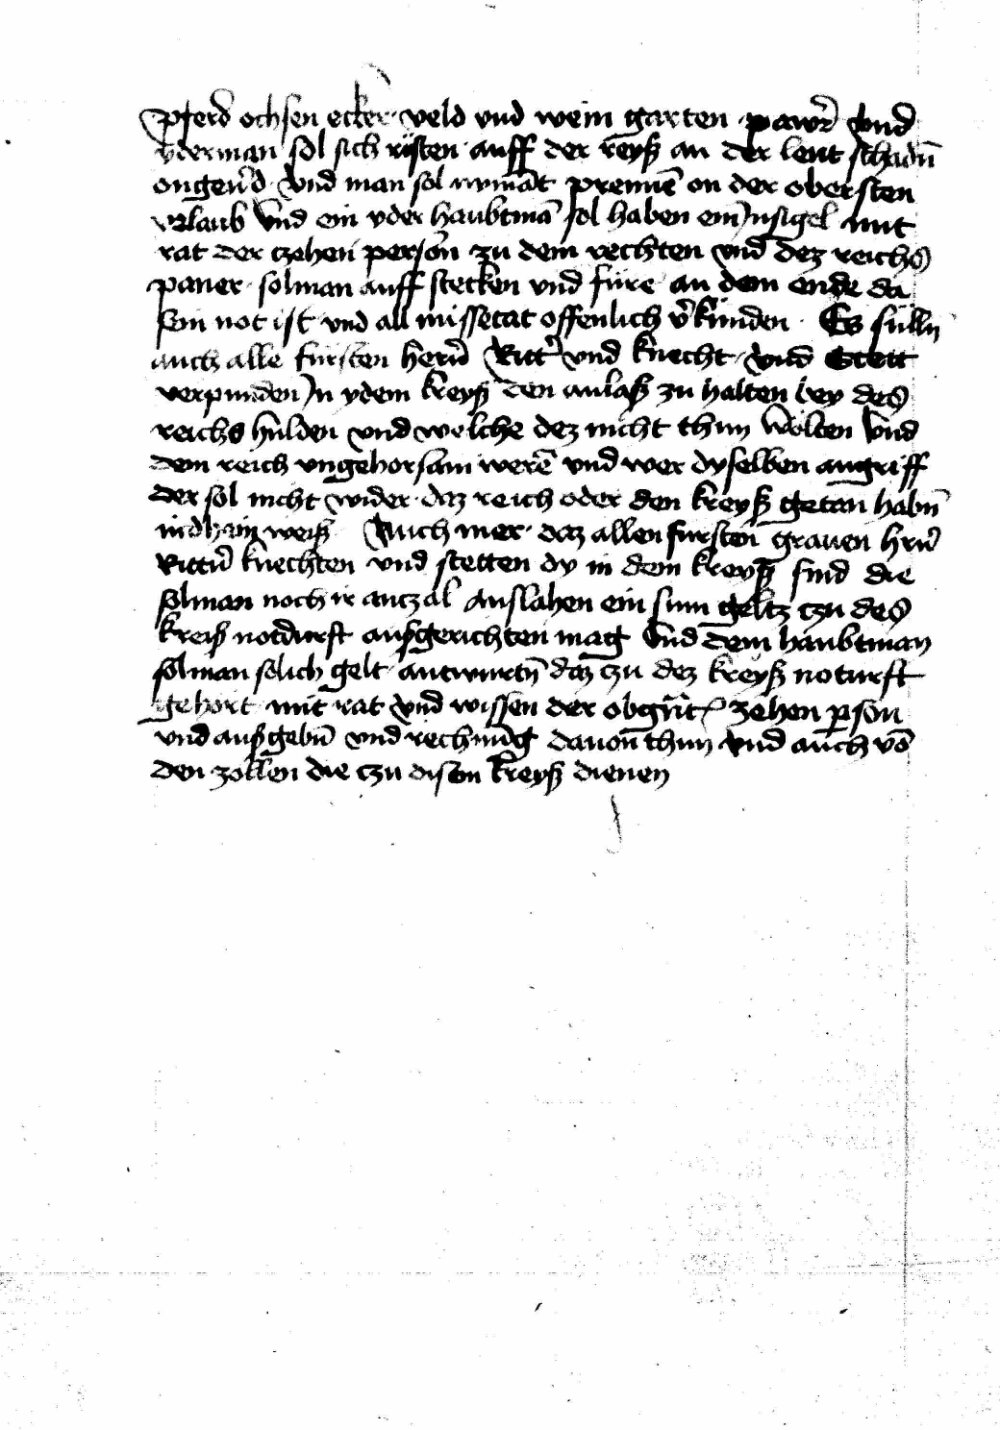 pferd ochsen ecker veld vnd wein garten pawr̄ vnd
yderman sol sich rüsten auff der reyß an der leut schadn̄
ongeu̅d vnd man sol nymāt prennē on der obersten
vrlaub vnd ein yder haubtmā sol haben ein Jnsigel mit
rat der czehen person zu dem rechten vnd dez reichs
paner solman auff stecken vnd füre an dem ende da
sein not ist vnd all missetat offenlich v̄künden Es sülln
auch alle fürsten hern̄ Ritt̄ vnd knecht vnd Stett
verpunden Jn ydem kreyß den anlaß zu halten bey des
reichs hulden vnd welche dez nicht thun wolten vnd
dem reich vngehorsam werē vnd wer dyselben angriff
der sol nicht wider daz reich oder den kreyß getan habn̄
in dhain weiß Auch mer daz allen fursten grauen hrn̄
Rittn̄ knechten vnd stetten dy in dem kreyß sind die
solman noch ir anczal Anslahen ein sum geltz czu des
kreiß notdurft außgerichten mag vnd dem haubtman
solman solich gelt antwurtn̄ daz zu dez kreyß noturft
gehort mit rat vnd wissen der obgn̄t zehen pson
vnd außgebn̄ vnd rechnūg dauon thun vnd auch vō
den zollen die czu disem kreyß dienen